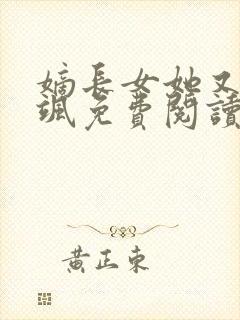 嫡長女她又
颯免費閱讀
黃正東